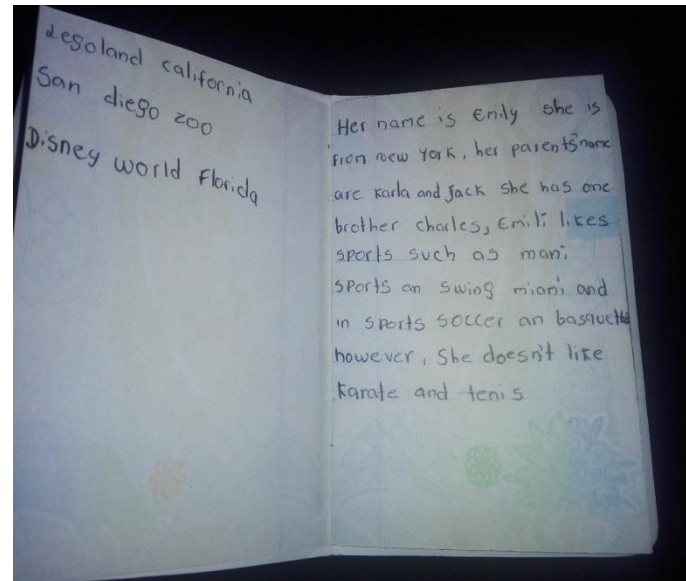 Legoland california
San diego zoo
Disney world Florida
Her name is Emily she is
From new York, her parents name
are Karla and Jack she has one
brother charles, Emili likes
sports such as mani
sports an swing miani and
in sports soccer an basquetb
however, She doesn't like
Karate and tenis